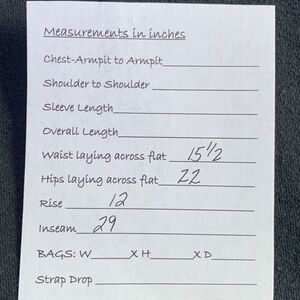 Measurements in inches
Chest-Armpit to Armpit
Shoulder to Shoulder
Sleeve Length
Overall Length
Waist laying across flat 15 1/2
Hips laying across flat 22
Rise 12
Inseam 29
BAGS: W X H X D
Strap Drop